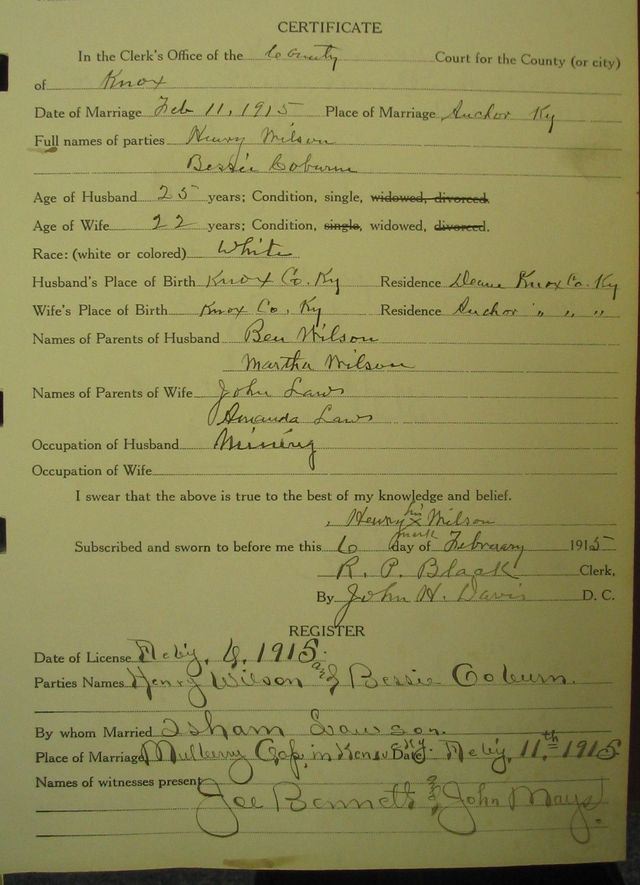 CERTIFICATE
In the Clerk's Office of the County Court for the County (or city)
of Knox
Date of Marriage Feb 11, 1915 Place of Marriage Anchor Ky
Full names of parties Henry Wilson
Bessie Coburn
Age of Husband 25 years; Condition, single, widowed, divorced.
Age of Wife 22 years; Condition, single, widowed, divorced.
Race: (white or colored) White
Husband's Place of Birth Knox Co. Ky Residence Knox Co. Ky
Wife's Place of Birth Knox Co, Ky Residence Anchor " " "
Names of Parents of Husband Ben Wilson
Martha Wilson
Names of Parents of Wife John Laws
Amanda Laws
Occupation of Husband Mining
Occupation of Wife
I swear that the above is true to the best of my knowledge and belief.
Henry his X mark Wilson
Subscribed and sworn to before me this 6 day of February 1915
R. P. Black Clerk,
By John H. Davis D. C.
REGISTER
Date of License Feby, 6, 1915.
Parties Names Henry Wilson and Bessie Coburn.
By whom Married Isham Lawson.
Place of Marriage Mulberry Gap, in Ky. Date Feby, 11th 1915
Names of witnesses present Joe Bennett and John Mays.